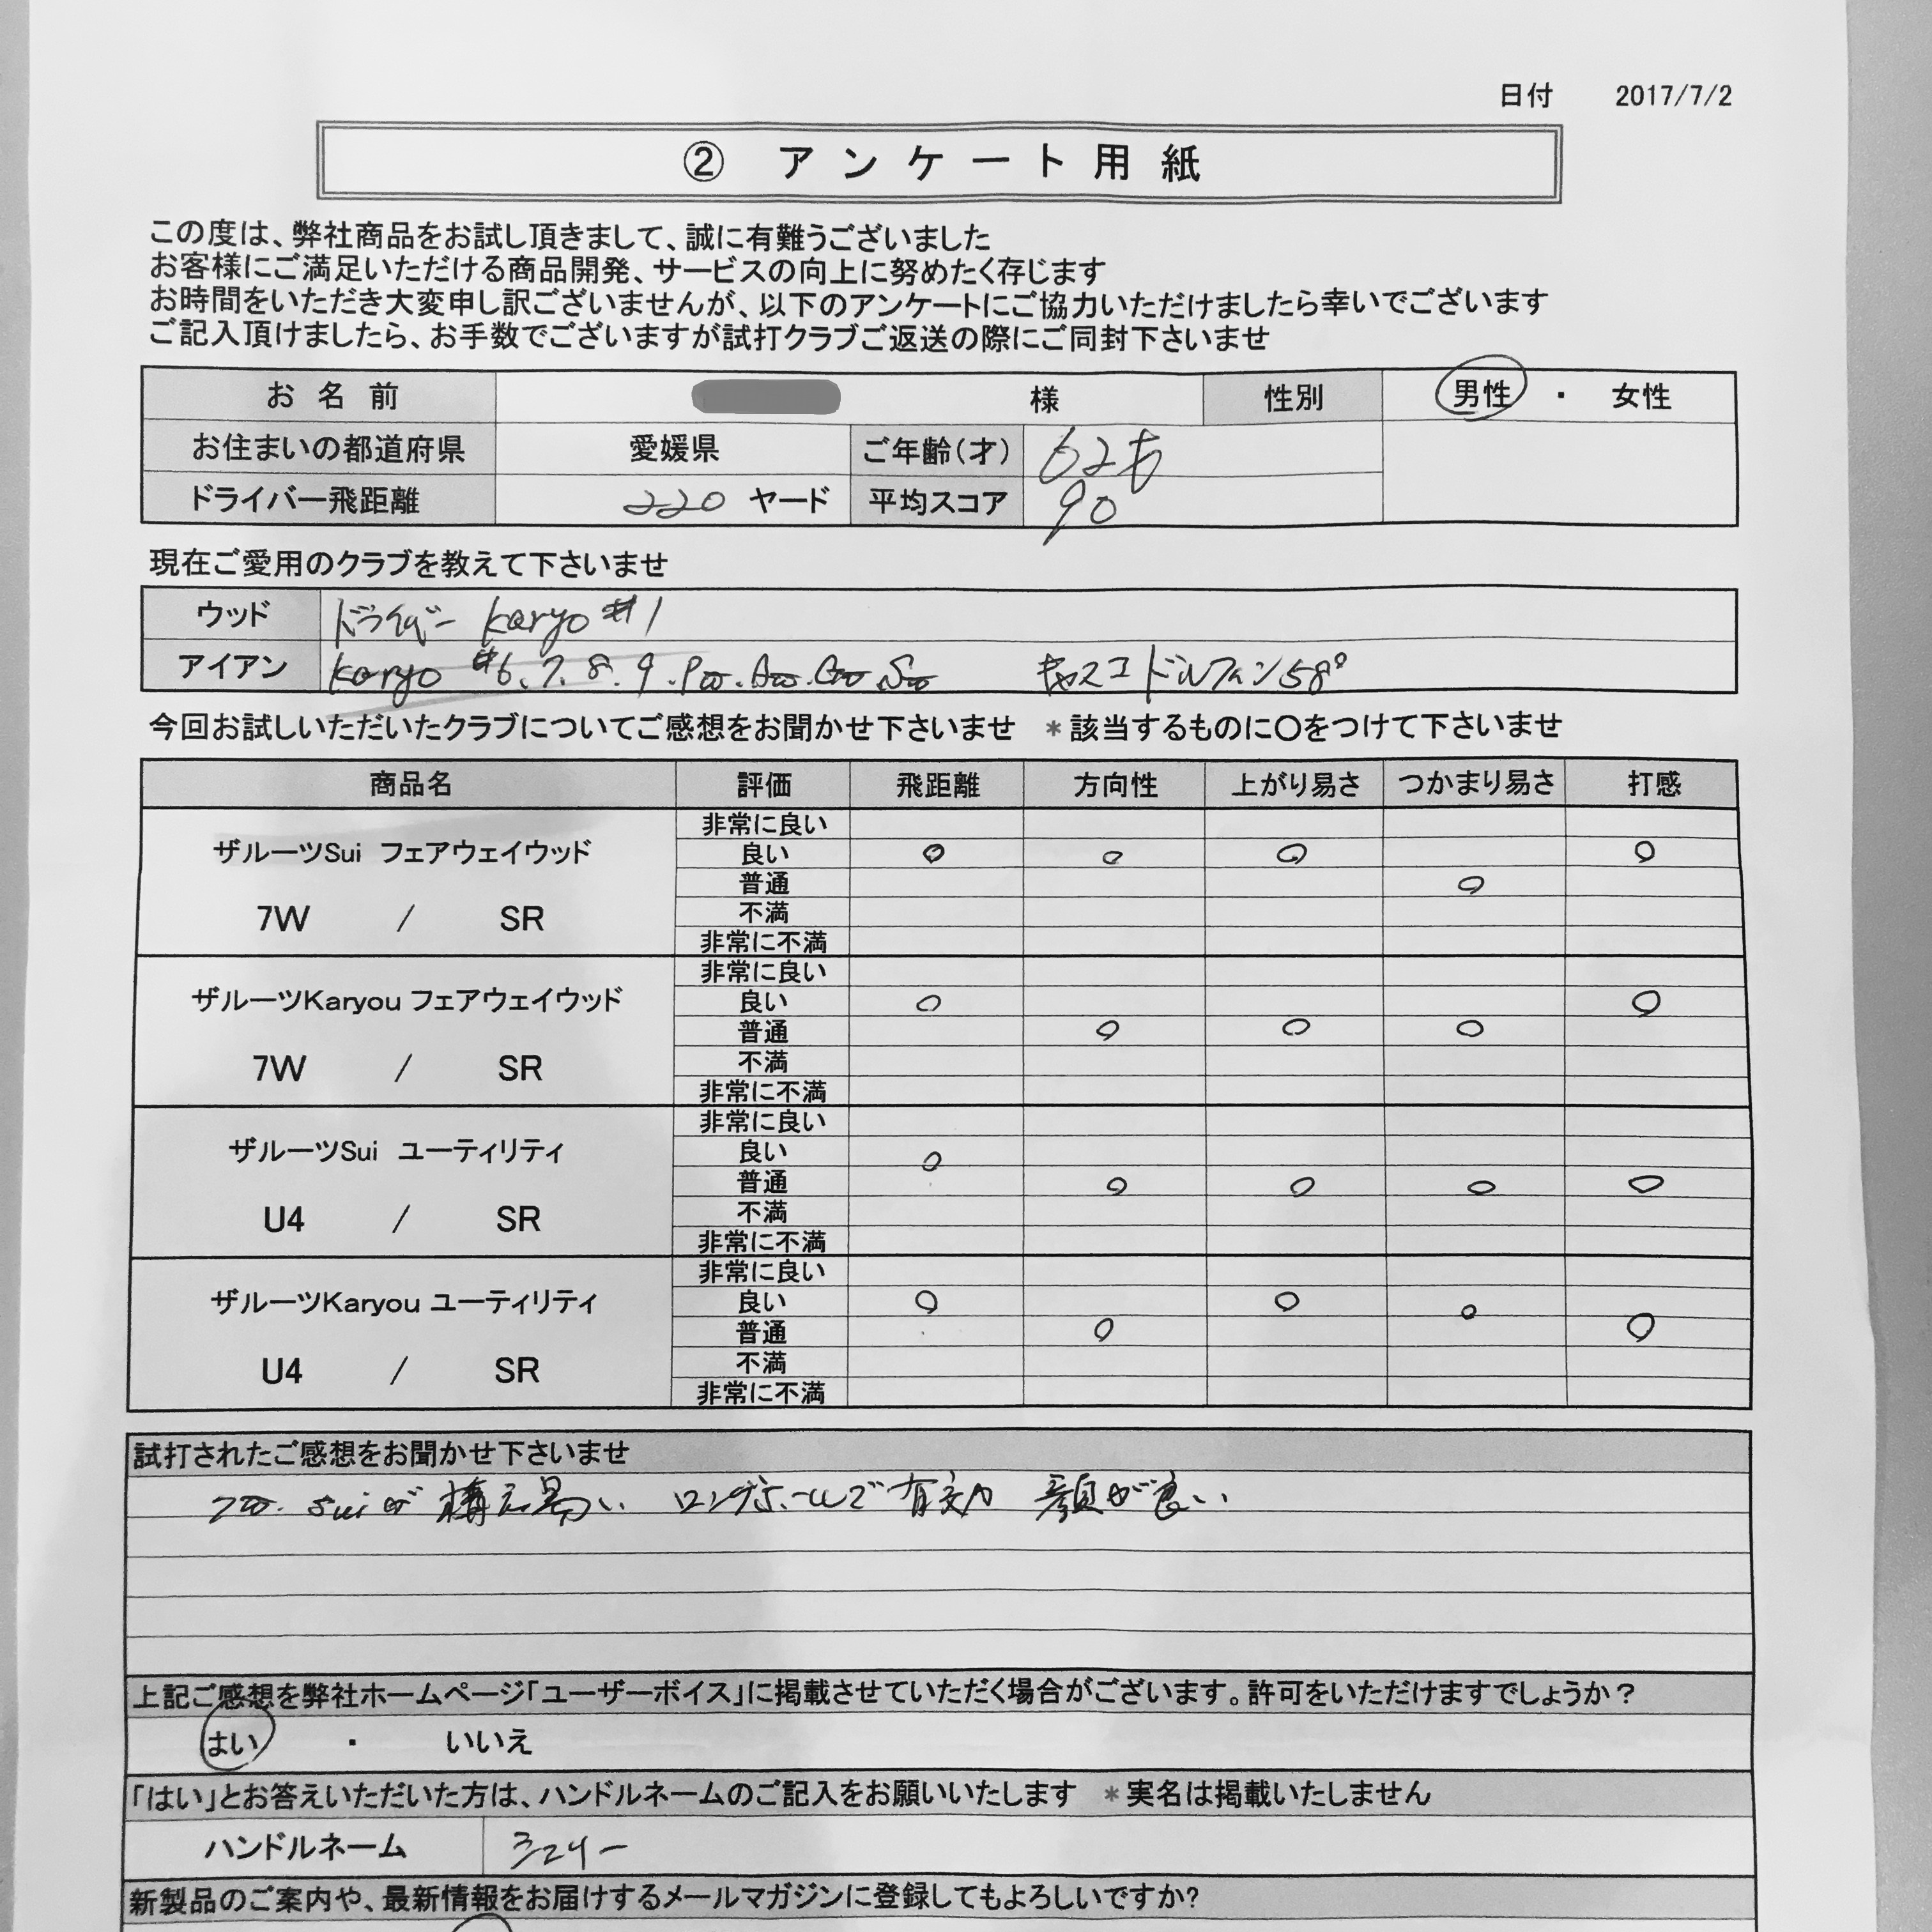 日付 2017/7/2
② アンケート用紙
この度は、弊社商品をお試し頂きまして、誠に有難うございました
お客様にご満足いただける商品開発、サービスの向上に努めたく存じます
お時間をいただき大変申し訳ございませんが、以下のアンケートにご協力いただけましたら幸いでございます
ご記入頂けましたら、お手数でございますが試打クラブご返送の際にご同封下さいませ
お名前 様 性別 男性 ・ 女性
お住まいの都道府県 愛媛県 ご年齢(才) 62才
ドライバー飛距離 220 ヤード 平均スコア 90
現在ご愛用のクラブを教えて下さいませ
ウッド ドライバー Karyo #1
アイアン Karyo #6.7.8.9.PW.AW.GW.SW キャスコ ドルフィン58°
今回お試しいただいたクラブについてご感想をお聞かせ下さいませ *該当するものに〇をつけて下さいませ
商品名 評価 飛距離 方向性 上がり易さ つかまり易さ 打感
ザルーツSui フェアウェイウッド
7W / SR
非常に良い
良い
普通
不満
非常に不満
ザルーツKaryou フェアウェイウッド
7W / SR
非常に良い
良い
普通
不満
非常に不満
ザルーツSui ユーティリティ
U4 / SR
非常に良い
良い
普通
不満
非常に不満
ザルーツKaryou ユーティリティ
U4 / SR
非常に良い
良い
普通
不満
非常に不満
試打されたご感想をお聞かせ下さいませ
7W. suiが構え易い ロングホールで有効 顔が良い
上記ご感想を弊社ホームページ「ユーザーボイス」に掲載させていただく場合がございます。許可をいただけますでしょうか?
はい ・ いいえ
「はい」とお答えいただいた方は、ハンドルネームのご記入をお願いいたします *実名は掲載いたしません
ハンドルネーム
新製品のご案内や、最新情報をお届けするメールマガジンに登録してもよろしいですか?